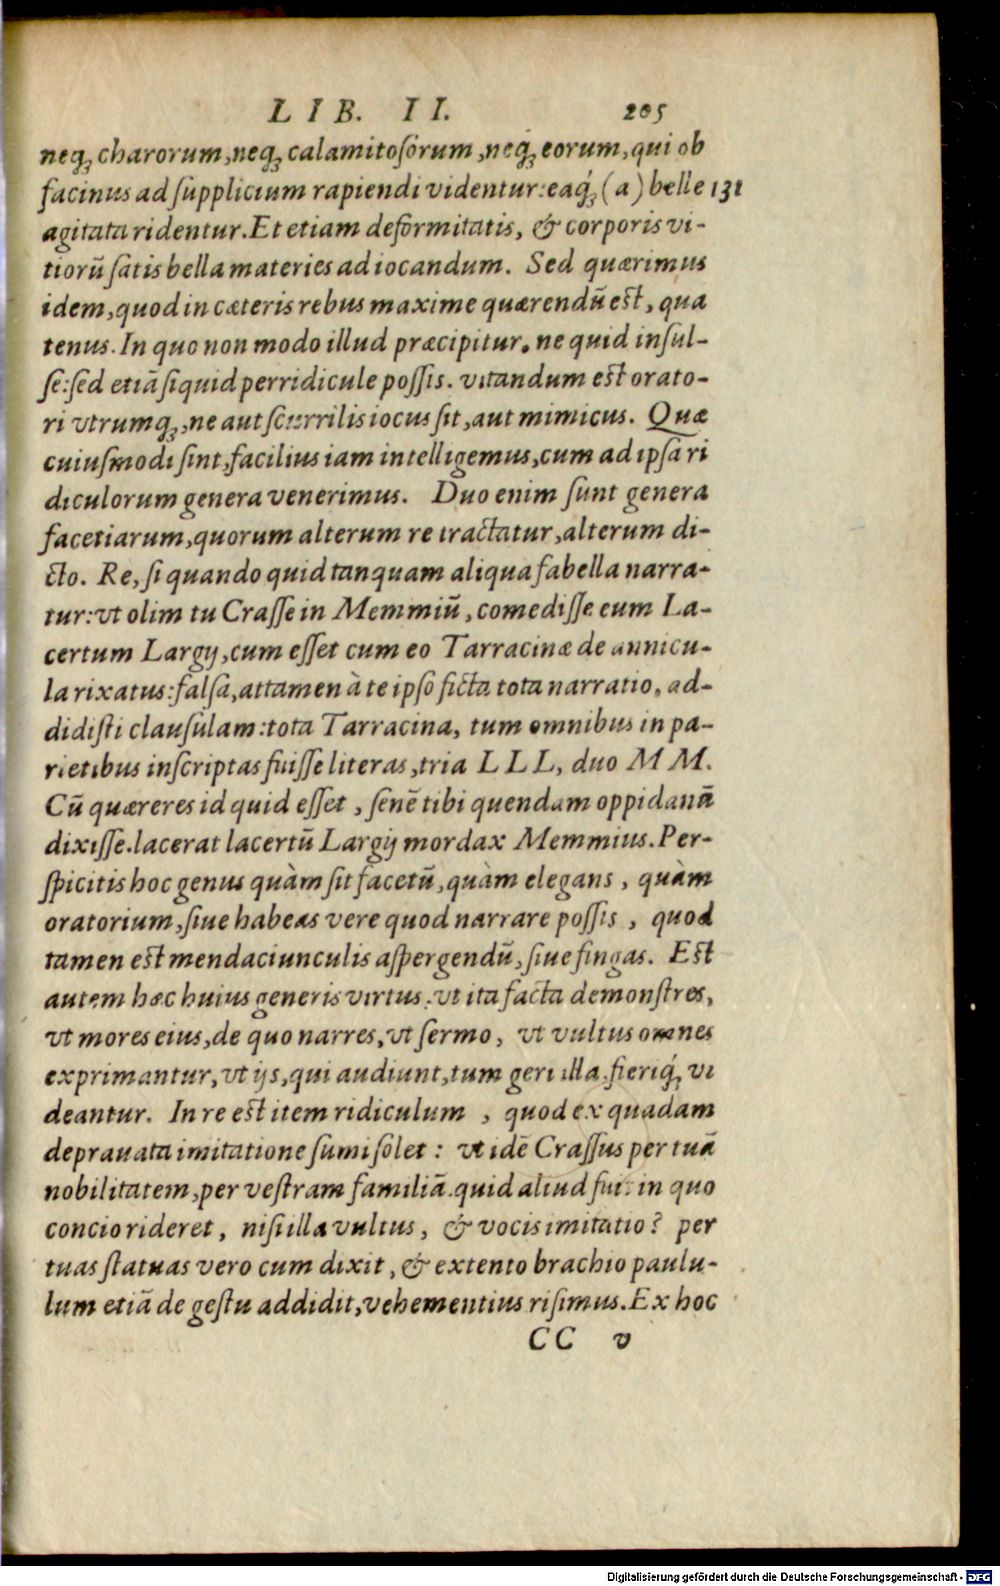 LIB. II. 205
neq; charorum, neq; calamitoſorum, neq́; eorum, qui ob
facinus ad ſupplicium rapiendi videntur: eaq́; (a) belle 131
agitata ridentur. Et etiam deformitatis, & corporis vi-
tiorū ſatis bella materies ad iocandum. Sed quærimus
idem, quod in cæteris rebus maxime quærendū est, qua
tenus. In quo non modo illud præcipitur. ne quid inſul-
ſe: ſed etiā ſiquid perridicule poſſis. vitandum est orato-
ri vtrumq;, ne aut ſcurrilis iocus ſit, aut mimicus. Quæ
cuiuſmodi ſint, facilius iam intelligemus, cum ad ipſa ri
diculorum genera venerimus. Duo enim ſunt genera
facetiarum, quorum alterum re tractatur, alterum di-
cto. Re, ſi quando quid tanquam aliqua fabella narra-
tur: vt olim tu Craſſe in Memmiū, comediſſe eum La-
certum Largij, cum eſſet cum eo Tarracinæ de annicu-
la rixatus: falſa, attamen à te ipſo ficta tota narratio, ad-
didiſti clauſulam: tota Tarracina, tum omnibus in pa-
rietibus inſcriptas fuiſſe literas, tria L L L, duo M M.
Cū quæreres id quid eſſet, ſenē tibi quendam oppidanā
dixiſſe. lacerat lacertū Largij mordax Memmius. Per-
ſpicitis hoc genus quàm ſit facetū, quàm elegans, quàm
oratorium, ſiue habeas vere quod narrare poſſis, quod
tamen est mendaciunculis aſpergendū, ſiue fingas. Est
autem hæc huius generis virtus, vt ita facta demonſtres,
vt mores eius, de quo narres, vt ſermo, vt vultus omnes
exprimantur, vt ijs, qui audiunt, tum geri illa, fieriq́; vi
deantur. In re est item ridiculum, quod ex quadam
deprauata imitatione ſumi ſolet: vt idē Craſſus per tuā
nobilitatem, per veſtram familiā. quid aliud fuit in quo
concio rideret, niſi illa vultus, & vocis imitatio? per
tuas ſtatuas vero cum dixit, & extento brachio paulu-
lum etiā de geſtu addidit, vehementius riſimus. Ex hoc
CC v
Digitalisierung gefördert durch die Deutsche Forschungsgemeinschaft - DFG